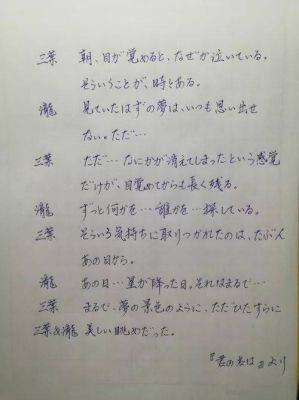 三葉 朝、目が覚めると、なぜか泣いている。
そういうことが、時々ある。
瀧 見ていたはずの夢は、いつも思い出せ
ない。ただ…
三葉 ただ…なにかが消えてしまったという感覚
だけが、目覚めてからも長く残る。
瀧 ずっと何かを…誰かを…探している。
三葉 そういう気持ちに取りつかれたのは、たぶん
あの日から。
瀧 あの日…星が降った日。それはまるで…
三葉 まるで、夢の景色のように、ただひたすらに
三葉&瀧 美しい眺めだった。
『君の名は』より